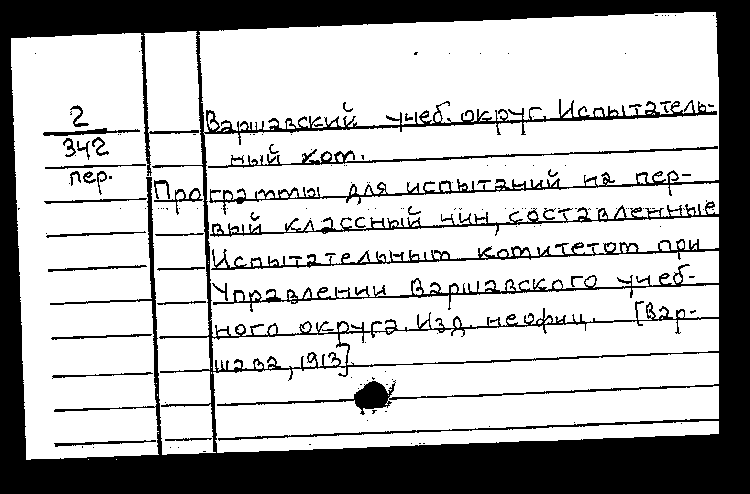 2
342
пер.
Варшавский учеб. округ. Испытатель-
ный ком.
Программы для испытаний на пер-
вый классный чин, составленные
Испытательным комитетом при
Управлении Варшавского учеб-
ного округа. Изд. неофиц. [Вар-
шава, 1913]